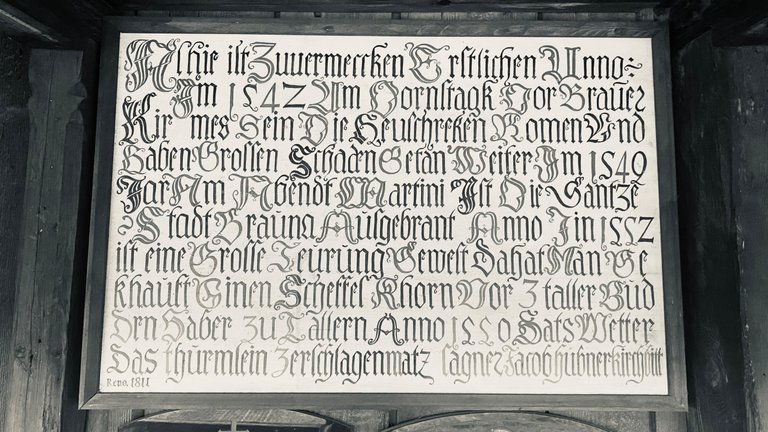 Alhie ist Zuuermercken Erstlichen Anno
Im 1542 Am Dornstagk Vor Brauner
Kirmes Sein Die Heuschreken Komen Vnd
Haben Grossen Schaden Getan Weiter Im 1549
Jar Am Abendt Martini Ist Die Gantze
Stadt Brauna Ausgebrant Anno Jm 1552
ist eine Grosse Teurung Gewest Da hat Man Ge
khauft Einen Scheffel Khorn Vor 3 taller Vnd
Den Haber zu Tallern Anno 1550 Hats Wetter
Das thürmlein Zerschlagen matz Jacob hübner kirchbitt
Reno. 1811